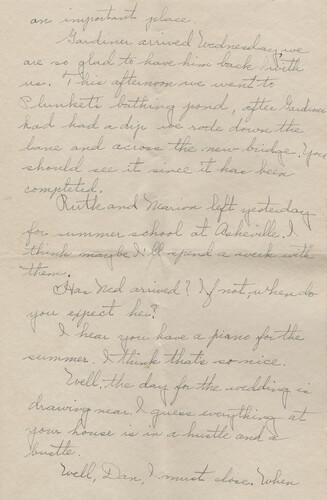 an important place.
Gardiner arrived Wednesday, we
are so glad to have him back with
us. This afternoon we went to
Plunkett bathing pond, after Gardiner
had had a dip we rode down the
lane and across the new bridge. You
should see it since it has been
completed.
Ruth and Marion left yesterday
for summer school at Asheville. I
think maybe I'll spend a week with
them.
Has Ned arrived? If not, when do
you expect he?
I hear you have a piano for the
summer. I think thats so nice.
Well, the day for the wedding is
drawing near. I guess everything at
your house is in a hustle and a
bustle.
Well, Dan, I must close. When